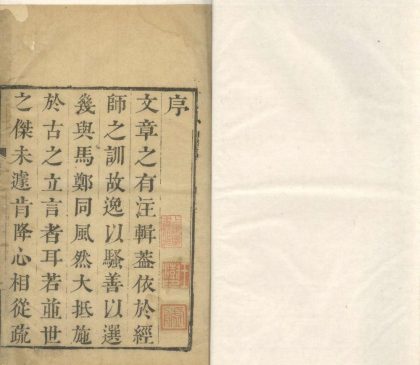 序
文章之有注輯葢依於經
師之訓故逸以騷善以選
幾與馬鄭同風然大抵施
於古之立言者耳若並世
之傑未遽肯降心相從疏